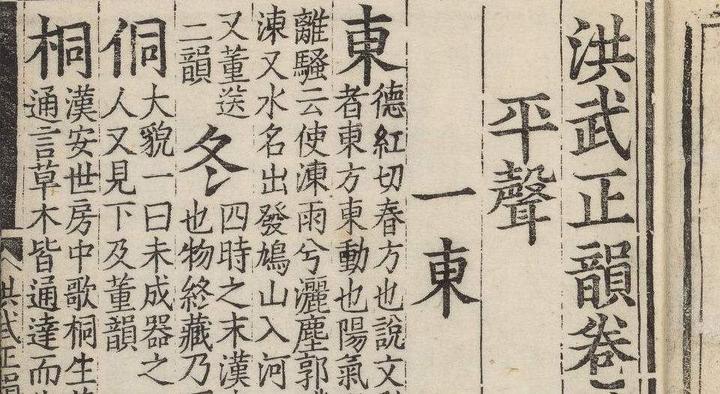 洪武正韻卷
平聲
一東
東
德紅切春方也說文
者東方東動也陽氣
離騷云使涷雨兮灑塵郭
涷又水名出發鳩山入河
又董送
二韻
冬
四時之末漢
也物終藏乃
侗
大貌一曰未成器之
人又見下及董韻
桐
漢安世房中歌桐生
通言草木皆通達而
洪武正韻